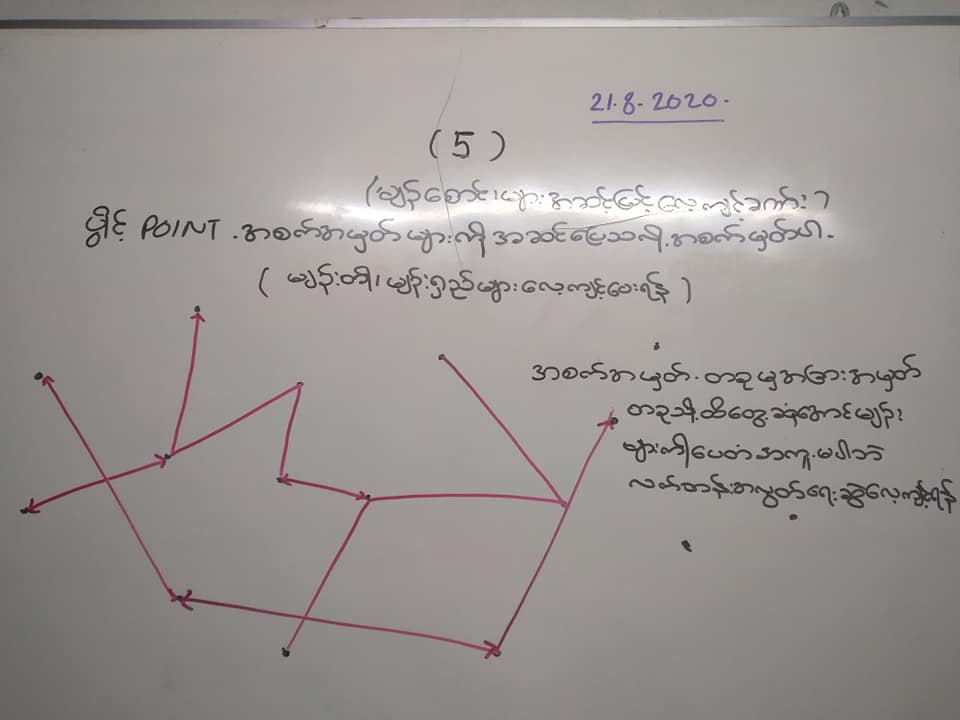 21.8.2020.
(5)
(မျဉ်စောင်းများအဆင့်မြင့်လေ့ကျင့်ခဏ်း)
ပွိုင့် POINT . အစက်အမှတ်များကို အဆင်ပြေသလို အစက်မှတ်ပါ.
( မျဉ်းတို၊ မျဉ်းရှည်များလေ့ကျင့်ပေးရန် )
အစက်အမှတ်. တခုမှအခြားအမှတ်
တခုသို့ထိတွေ့ဆုံအောင်မျဉ်း
များကိုပေတံအကူမပါဘဲ
လက်တန်းအလွတ်ရေးဆွဲလေ့ကျင့်ရန်